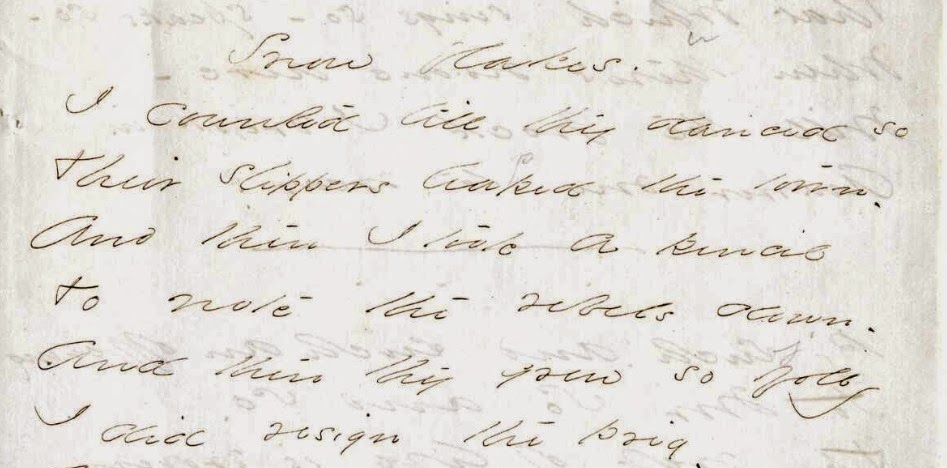 Snow flakes.
I counted till they danced so
Their slippers leaped the town.
And then I took a pencil
to note the rebels down.
And then they grew so jolly
I did resign the prig